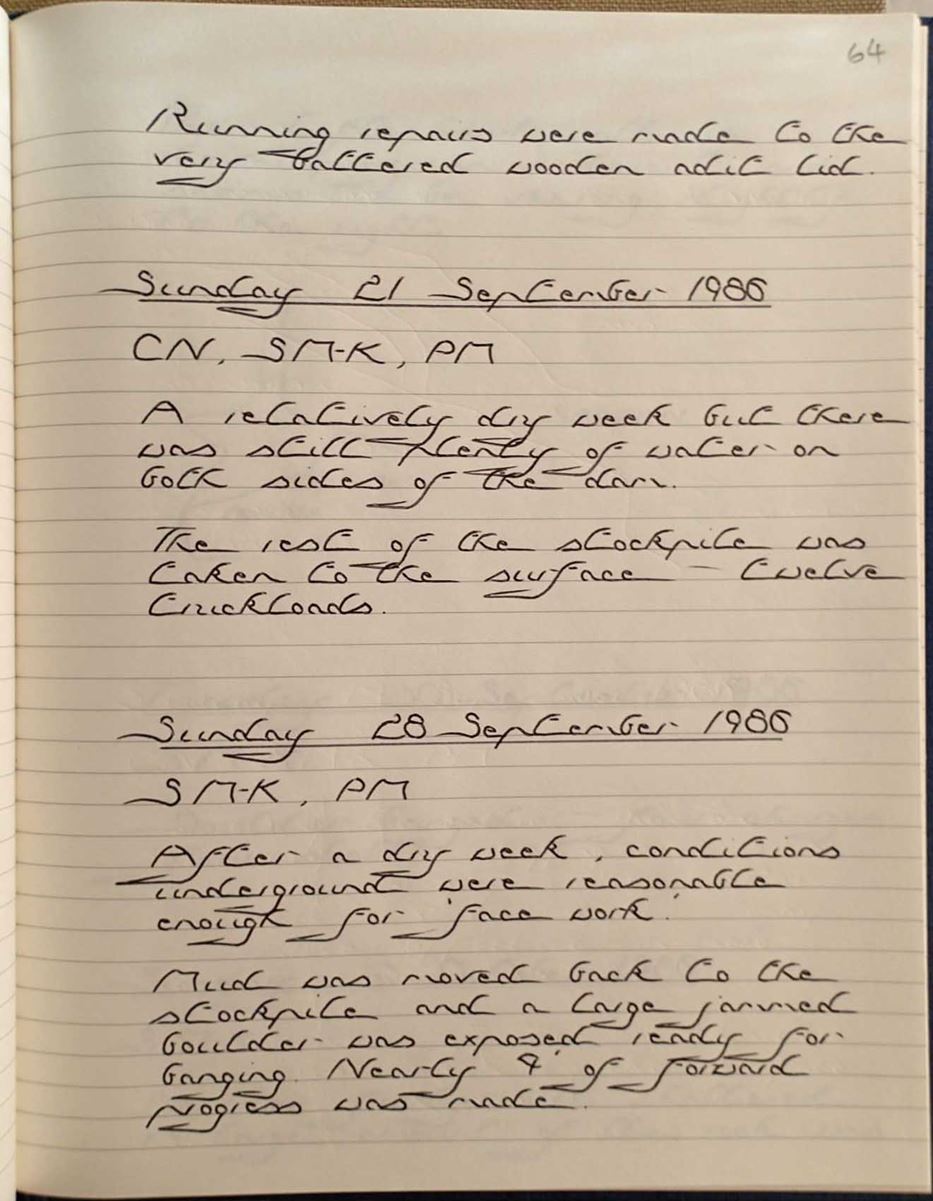 64
Running repairs were made to the
very battered wooden adit lid.
Sunday 21 September 1986
CN, SM-K, PM
A relatively dry week but there
was still plenty of water on
both sides of the dam.
The rest of the stockpile was
taken to the surface – twelve
truckloads.
Sunday 28 September 1986
SM-K, PM
After a dry week, conditions
underground were reasonable
enough for 'face work'.
Mud was moved back to the
stockpile and a large jammed
boulder was exposed ready for
banging. Nearly 4' of forward
progress was made.